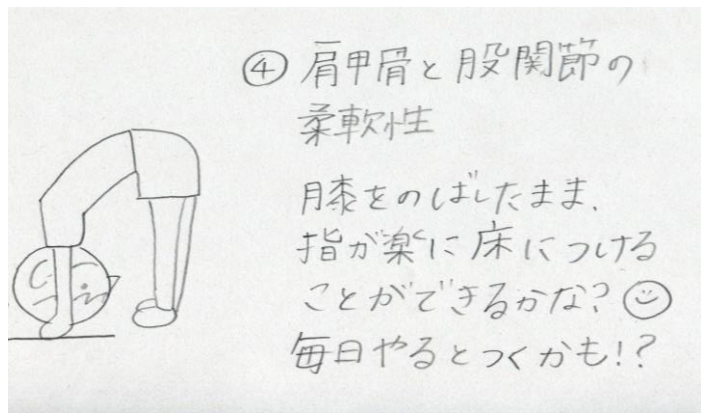 ④ 肩甲骨と股関節の
柔軟性
膝をのばしたまま、
指が楽に床につける
ことができるかな?
毎日やるとつくかも!?